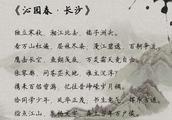 《沁园春·长沙》
独立寒秋，湘江北去，橘子洲头。
看万山红遍，层林尽染，漫江碧透，百舸争流。
鹰击长空，鱼翔浅底，万类霜天竞自由。
怅寥廓，问苍茫大地，谁主沉浮？
携来百侣曾游，忆往昔峥嵘岁月稠。
恰同学少年，风华正茂，书生意气，挥斥方遒。
指点江山，激扬文字，粪土当年万户侯。